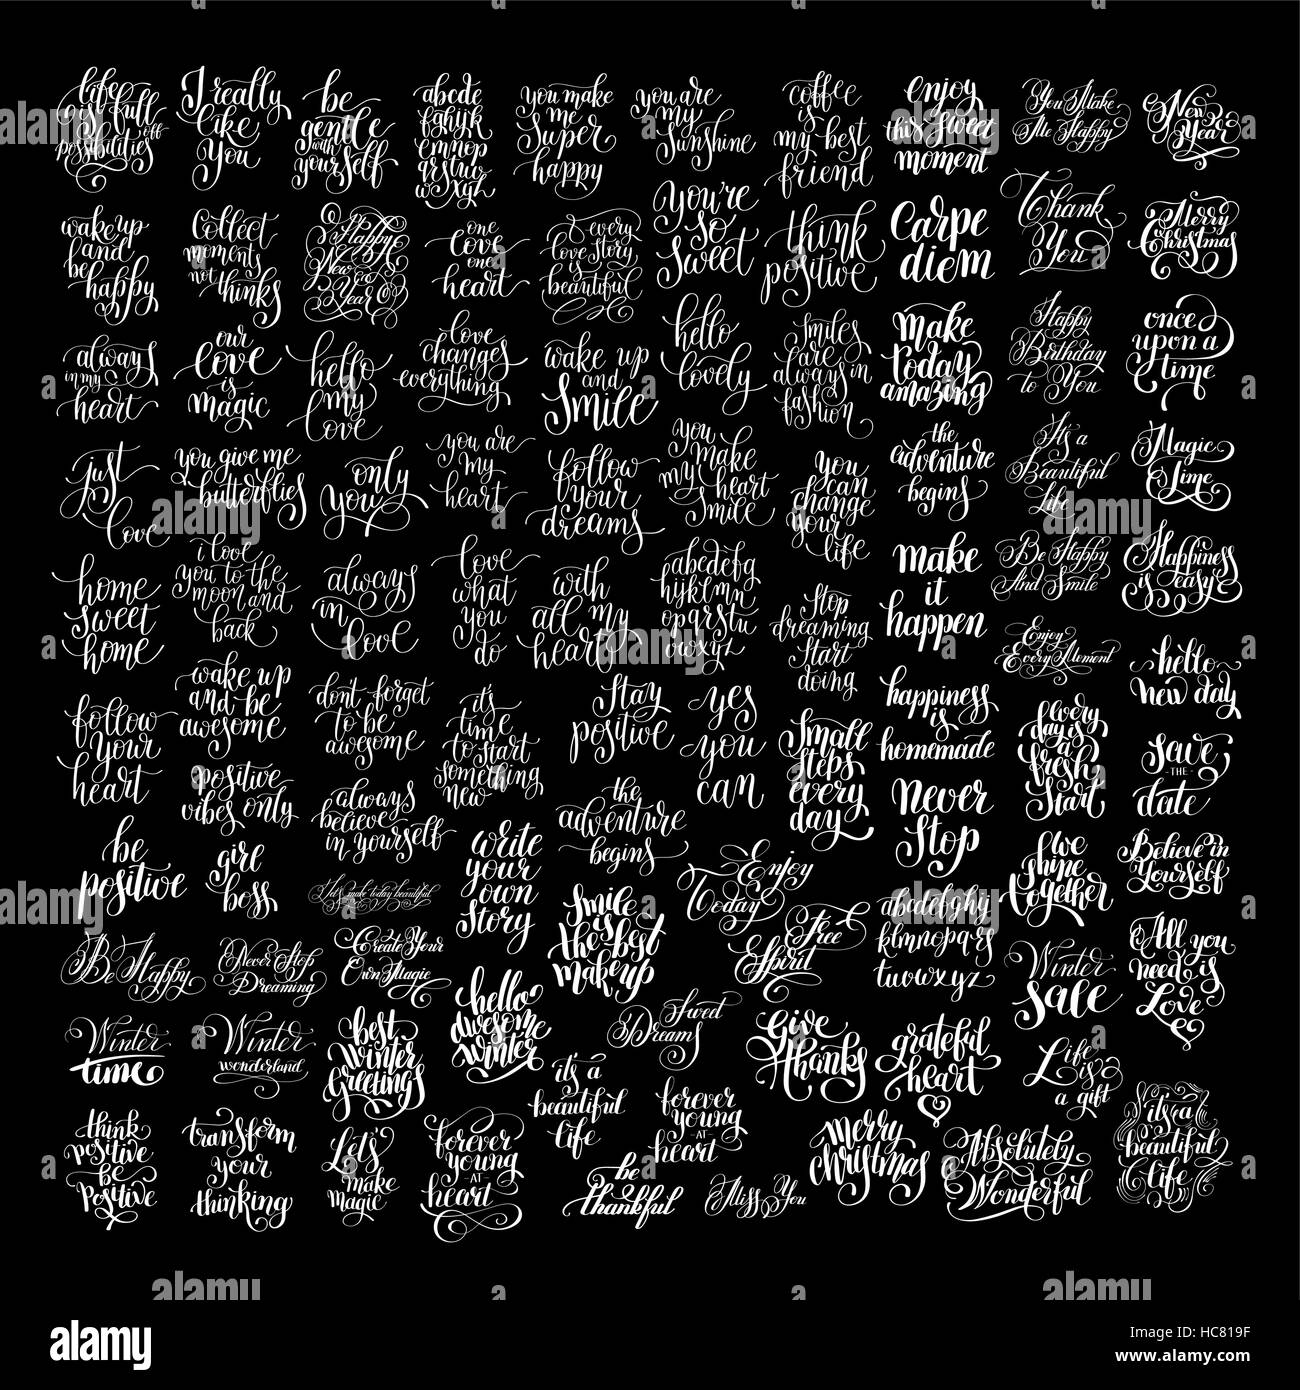 life
is full
off
possibilities
I really
like
you
be
gentle
with
yourself
abcde
fghijk
lmnop
qrstuv
wxyz
you make
me
super
happy
you are
my
sunshine
coffee
is
my best
friend
enjoy
this sweet
moment
You Make
Me Happy
New
Year
wake up
and
be
happy
collect
moments
not
things
Happy
New
Year
one
love
one
heart
every
love story
is
beautiful
you're
so
sweet
think
positive
carpe
diem
Thank
You
Merry
Christmas
always
in my
heart
our
love
is
magic
hello
my
love
love
changes
everything
wake up
and
smile
hello
lovely
smiles
are
always in
fashion
make
today
amazing
Happy
Birthday
to You
once
upon a
time
just
love
you give me
butterflies
only
you
you are
my
heart
follow
your
dreams
you
make
my heart
smile
you
can
change
your
life
the
adventure
begins
It's a
Beautiful
Life
Magic
Time
home
sweet
home
i love
you to the
moon and
back
always
in
love
love
what
you
do
with
all my
heart
abcdefg
hijklmn
opqrstu
vwxyz
stop
dreaming
start
doing
make
it
happen
Be Happy
And Smile
Happiness
is easy
follow
your
heart
wake up
and be
awesome
don't forget
to be
awesome
it's
time
to start
something
new
stay
positive
yes
you
can
small
steps
every
day
happiness
is
homemade
Enjoy
Every Moment
hello
new day
positive
vibes only
always
believe
in yourself
the
adventure
begins
never
stop
every
day is
a
fresh
start
save
THE
date
be
positive
girl
boss
Let's make today beautiful
write
your
own
story
smile
is
the best
makeup
Enjoy
Today
Free
Spirit
abcdefghij
klmnopqrs
tuvwxyz
we
shine
together
Believe in
Yourself
Be Happy
Never Stop
Dreaming
Create Your
Own Magic
hello
awesome
winter
Sweet
Dreams
Give
Thanks
grateful
heart
Winter
sale
All you
need is
Love
Winter
time
Winter
wonderland
best
winter
greetings
it's a
beautiful
life
forever
young
AT
heart
Life
is
a gift
think
positive
be
positive
transform
your
thinking
Let's
make
magic
forever
young
AT
heart
be
thankful
Miss You
merry
christmas
Absolutely
Wonderful
it's a
beautiful
life
alamy
alamy
alamy
a
a
a
alamy
Image ID: HC819F
www.alamy.com